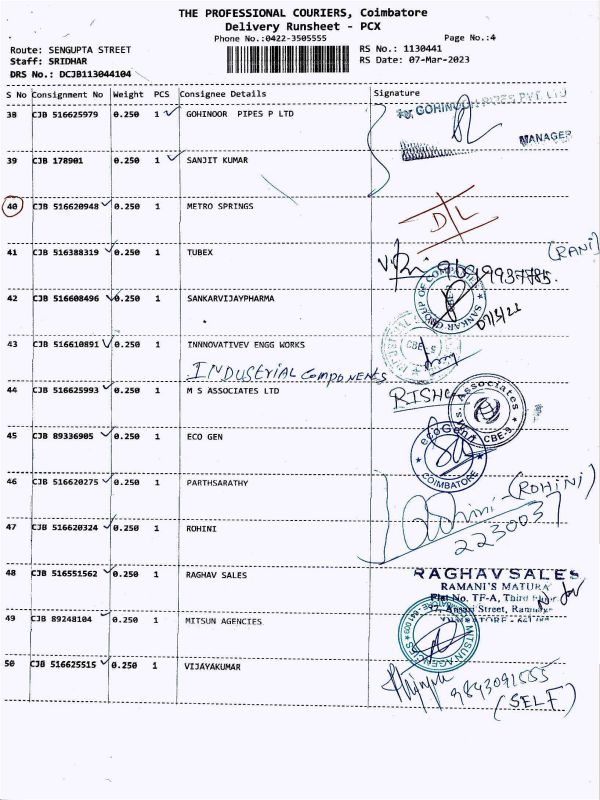 THE PROFESSIONAL COURIERS, Coimbatore
Delivery Runsheet - PCX
Phone No.:0422-3505555 Page No.:4
Route: SENGUPTA STREET RS No.: 1130441
Staff: SRIDHAR RS Date: 07-Mar-2023
DRS No.: DCJB113044104
S No Consignment No Weight PCS Consignee Details Signature
38 CJB 516625979 0.250 1 GOHINOOR PIPES P LTD
For GOHINOOR PIPES PVT LTD
MANAGER
39 CJB 178901 0.250 1 SANJIT KUMAR
40 CJB 516620948 0.250 1 METRO SPRINGS D/L
(RANI)
41 CJB 516388319 0.250 1 TUBEX
42 CJB 516608496 0.250 1 SANKARVIJAYPHARMA
SANKAR GROUP OF COMPANIES
CBE-9
43 CJB 516610891 0.250 1 INNNOVATIVEV ENGG WORKS
CBE-9
INDUSTRIAL COMPONENTS
44 CJB 516625993 0.250 1 M S ASSOCIATES LTD
M.s. Associates CBE-9
45 CJB 89336905 0.250 1 ECO GEN
ecoGenn COIMBATORE
46 CJB 516620275 0.250 1 PARTHSARATHY
(ROHINI)
47 CJB 516620324 0.250 1 ROHINI
2230037
48 CJB 516551562 0.250 1 RAGHAV SALES
RAGHAV SALES
RAMANI'S MATURA
Flat No. TF-A, Third Floor
Ansari Street, Ramnagar
49 CJB 89248104 0.250 1 MITSUN AGENCIES
MITSUN AGENCIES
50 CJB 516625515 0.250 1 VIJAYAKUMAR
9843091555
(SELF)